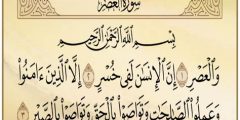 سورة العصر
بسم الله الرحمن الرحيم
والعصر ١ إن الإنسان لفي خسر ٢ إلا الذين ءامنوا
وعملوا الصالحات وتواصوا بالحق وتواصوا بالصبر ٣